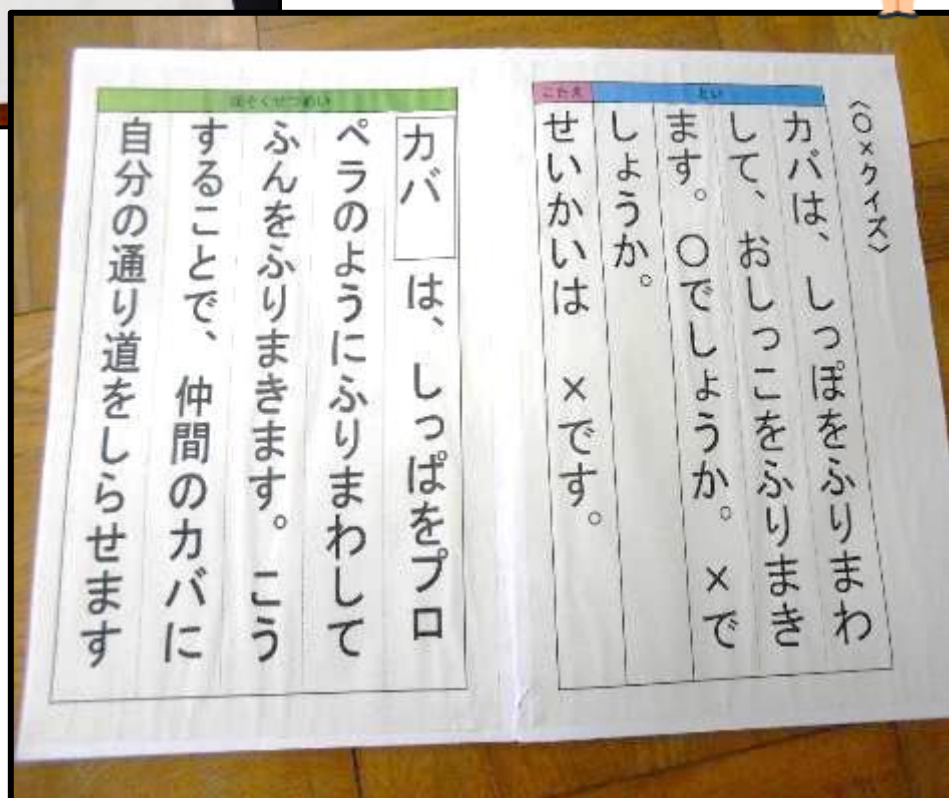 〈○×クイズ〉
とい
カバは、しっぽをふりまわ
して、おしっこをふりまき
ます。○でしょうか。×で
しょうか。
こたえ
せいかいは ×です。
ほそくせつめい
カバ は、しっぱをプロ
ペラのようにふりまわして
ふんをふりまきます。こう
することで、仲間のカバに
自分の通り道をしらせます